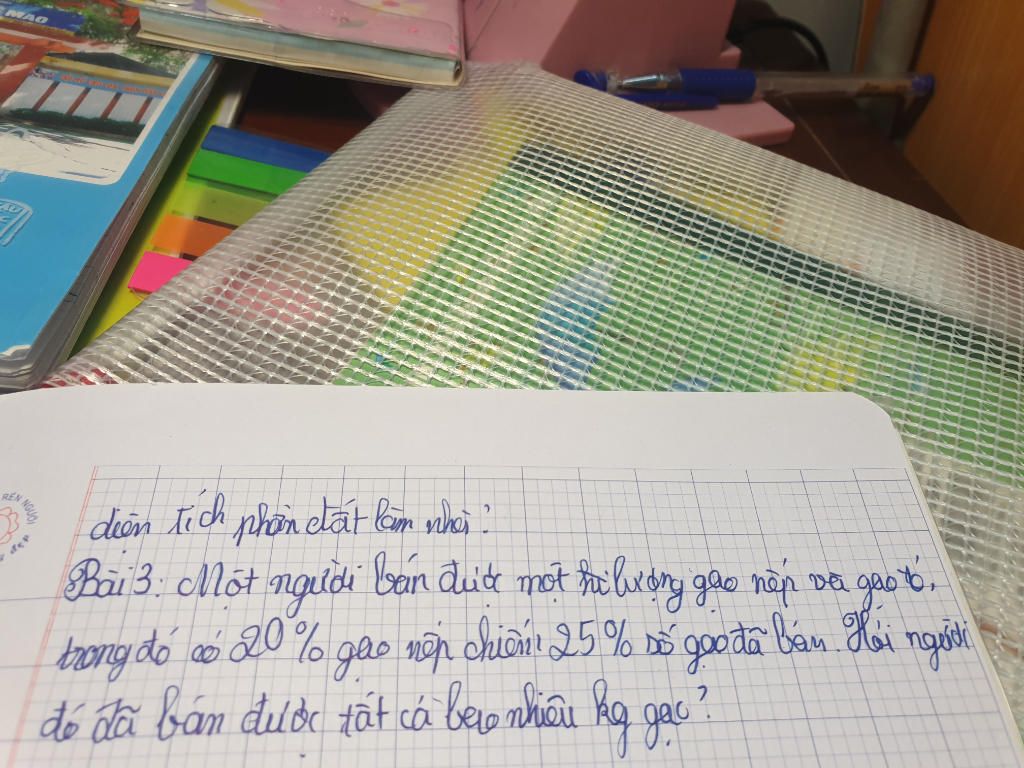 MAO
RÈN NGƯỜI
ĐẸP
diện tích phần đất làm nhà?
Bài 3: Một người bán được một lượng gạo nếp và gạo tẻ,
trong đó có 20% gạo nếp chiếm 25% số gạo đã bán. Hỏi người
đó đã bán được tất cả bao nhiêu kg gạo?